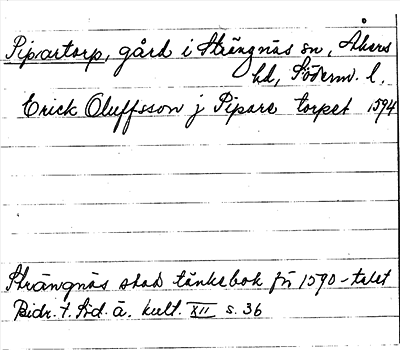 Pipartorp, gård i Strängnäs sn, Åkers
hd, Söderm. l.
Erick Oluffsson j Pipare torpet 1594
Strängnäs stads tänkebok för 1590-talet
Bidr. t. Söd. ä. kult. XII s. 36